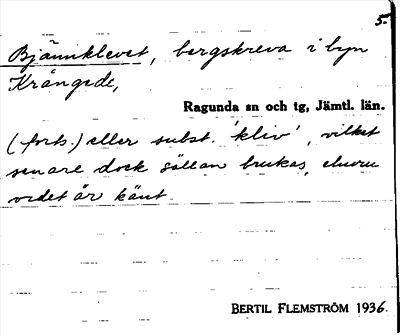 5.
Bjännklevet, bergskreva i byn
Krångede,
Ragunda sn och tg, Jämtl. län.
(forts.) eller subst. 'kliv', vilket
senare dock sällan brukas, ehuru
ordet är känt.
BERTIL FLEMSTRÖM 1936.